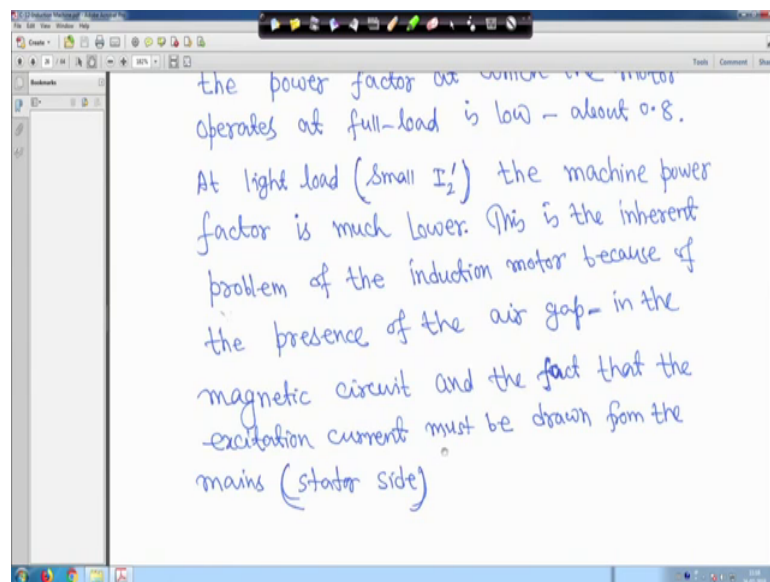 IC-13-Induction Machine.pdf - Adobe Acrobat Pro
File Edit View Window Help
Create
Tools Comment
Bookmarks
the power factor at which the motor
operates at full-load is low - about 0.8.
At light load (small I2') the machine power
factor is much lower. This is the inherent
problem of the induction motor because of
the presence of the air gap - in the
magnetic circuit and the fact that the
excitation current must be drawn from the
mains (stator side)